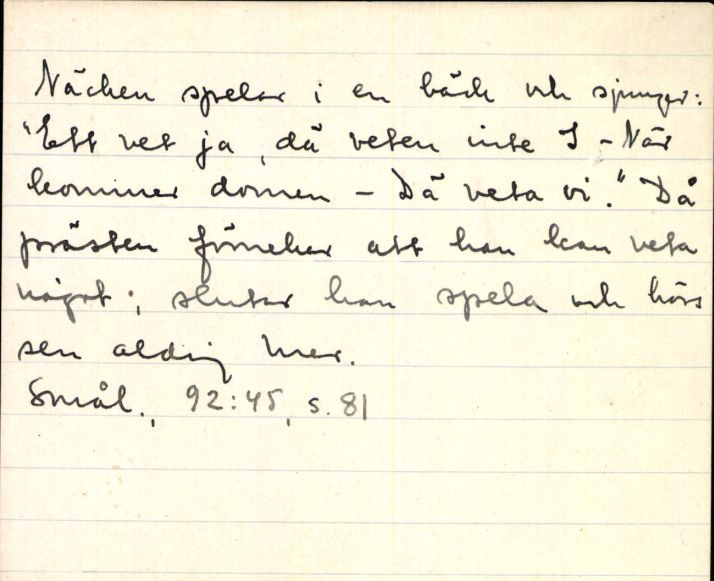 Näcken spelar i en bäck och sjunger:
"Ett vet ja, dä veten inte I - När
kommer domen - Dä veta vi." Då
prästen förnekar att han kan veta
något, slutar han spela och hörs
sen aldrig mer.
Smål., 92:45, s. 81